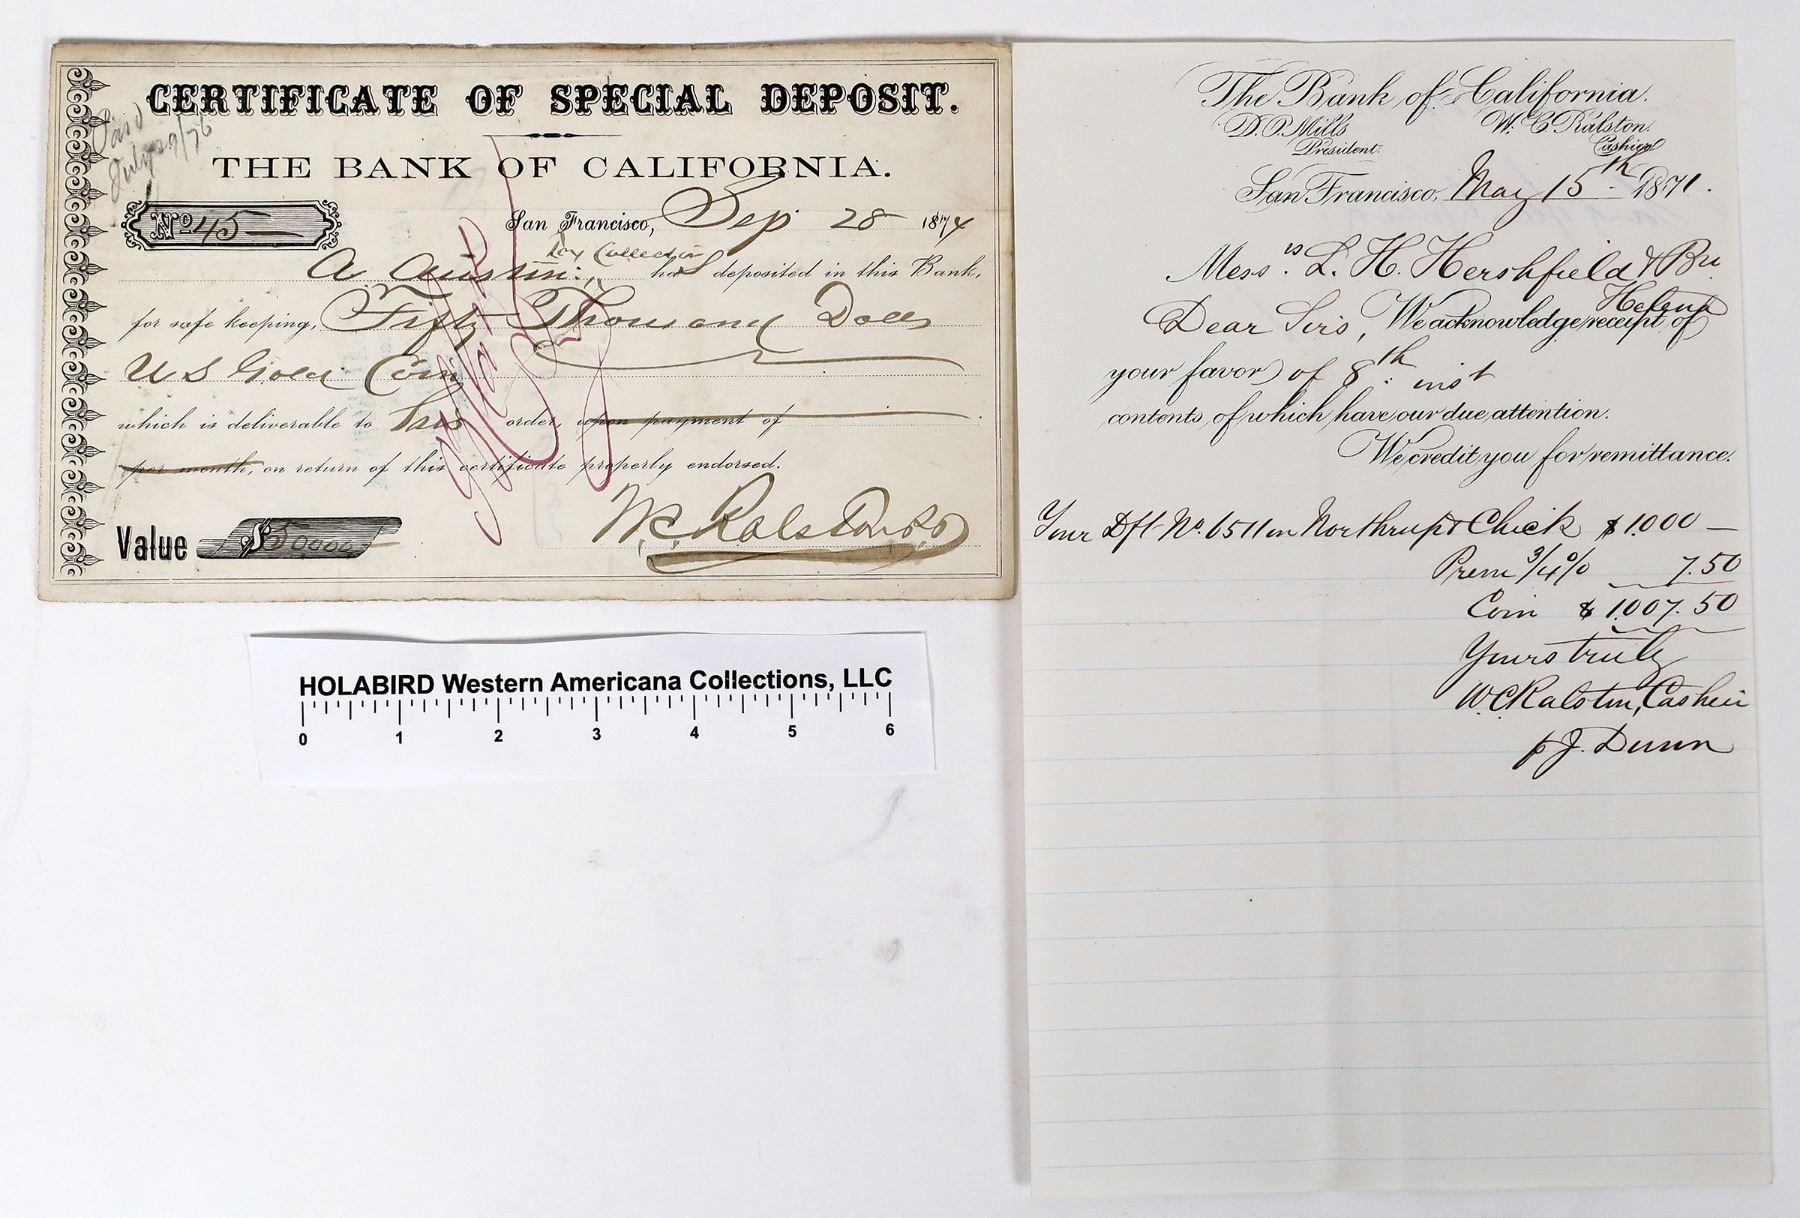 CERTIFICATE OF SPECIAL DEPOSIT.
Paid
July 29/76
THE BANK OF CALIFORNIA.
No 45
San Francisco, Sep 28 1874
Tax Collector
A. Austin has deposited in this Bank,
for safe keeping, Fifty Thousand Dolls
U S Gold Coin
which is deliverable to his order, upon payment of
per month, on return of this certificate properly endorsed.
Value $50000
W.C. Ralston
HOLABIRD Western Americana Collections, LLC
0 1 2 3 4 5 6
The Bank of California.
D. O. Mills W. C. Ralston.
President. Cashier
San Francisco, May 15th 1871.
Messrs. L. H. Hershfield & Bro
Helena
Dear Sirs, We acknowledge receipt of
your favor of 8th inst
contents of which have our due attention.
We credit you for remittance.
Your Dft No. 6511 on Northrup & Chick $1.000 —
Prem 3/4% 7.50
Coin $1.007.50
Yours truly
W.C. Ralston, Cashier
p J. Dunn